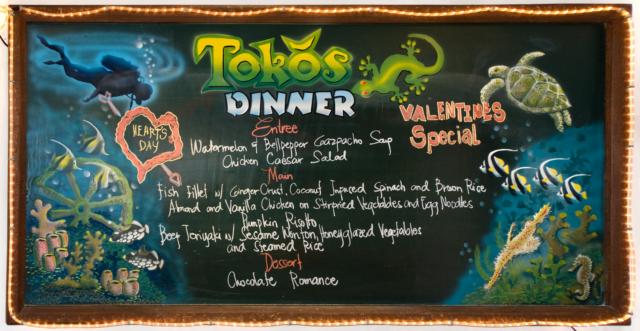 TOKÖS
DINNER
HEARTS
DAY
VALENTINES
Special
Entree
Watermelon & Bellpepper Gazpacho Soup
Chicken Caesar Salad
Main
Fish Fillet w/ Ginger Crust, Coconut Infuced Spinach and Brown Rice
Almond and Vanilla Chicken on Stirfried Vegetables and Egg Noodles
Pumpkin Risotto
Beef Teriyaki w/ Sesame Wonton, Honeyglazed Vegetables
and Steamed Rice
Dessert
Chocolate Romance